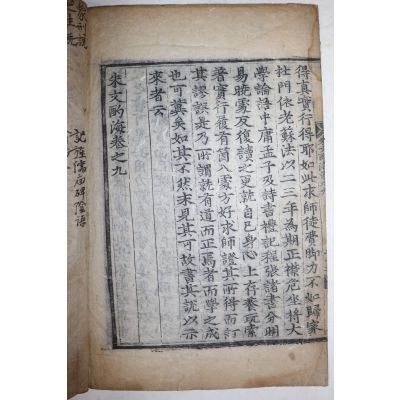 得眞實行得耶如此求師徒費脚力不如歸家
杜門依老蘇法以二三年爲期正襟危坐將大
學論語中庸孟子及詩書禮記程張諸書分明
易曉處反復讀之更就自己身心上存養玩索
着實行履有箇入處方好求師證其所得而訂
其謬誤是乃所謂就有道而正焉者而學之成
也可冀矣如其不然未見其可故書其說以示
來者云
朱文酌海卷之九
象刑說
記旌儒廟碑陰語